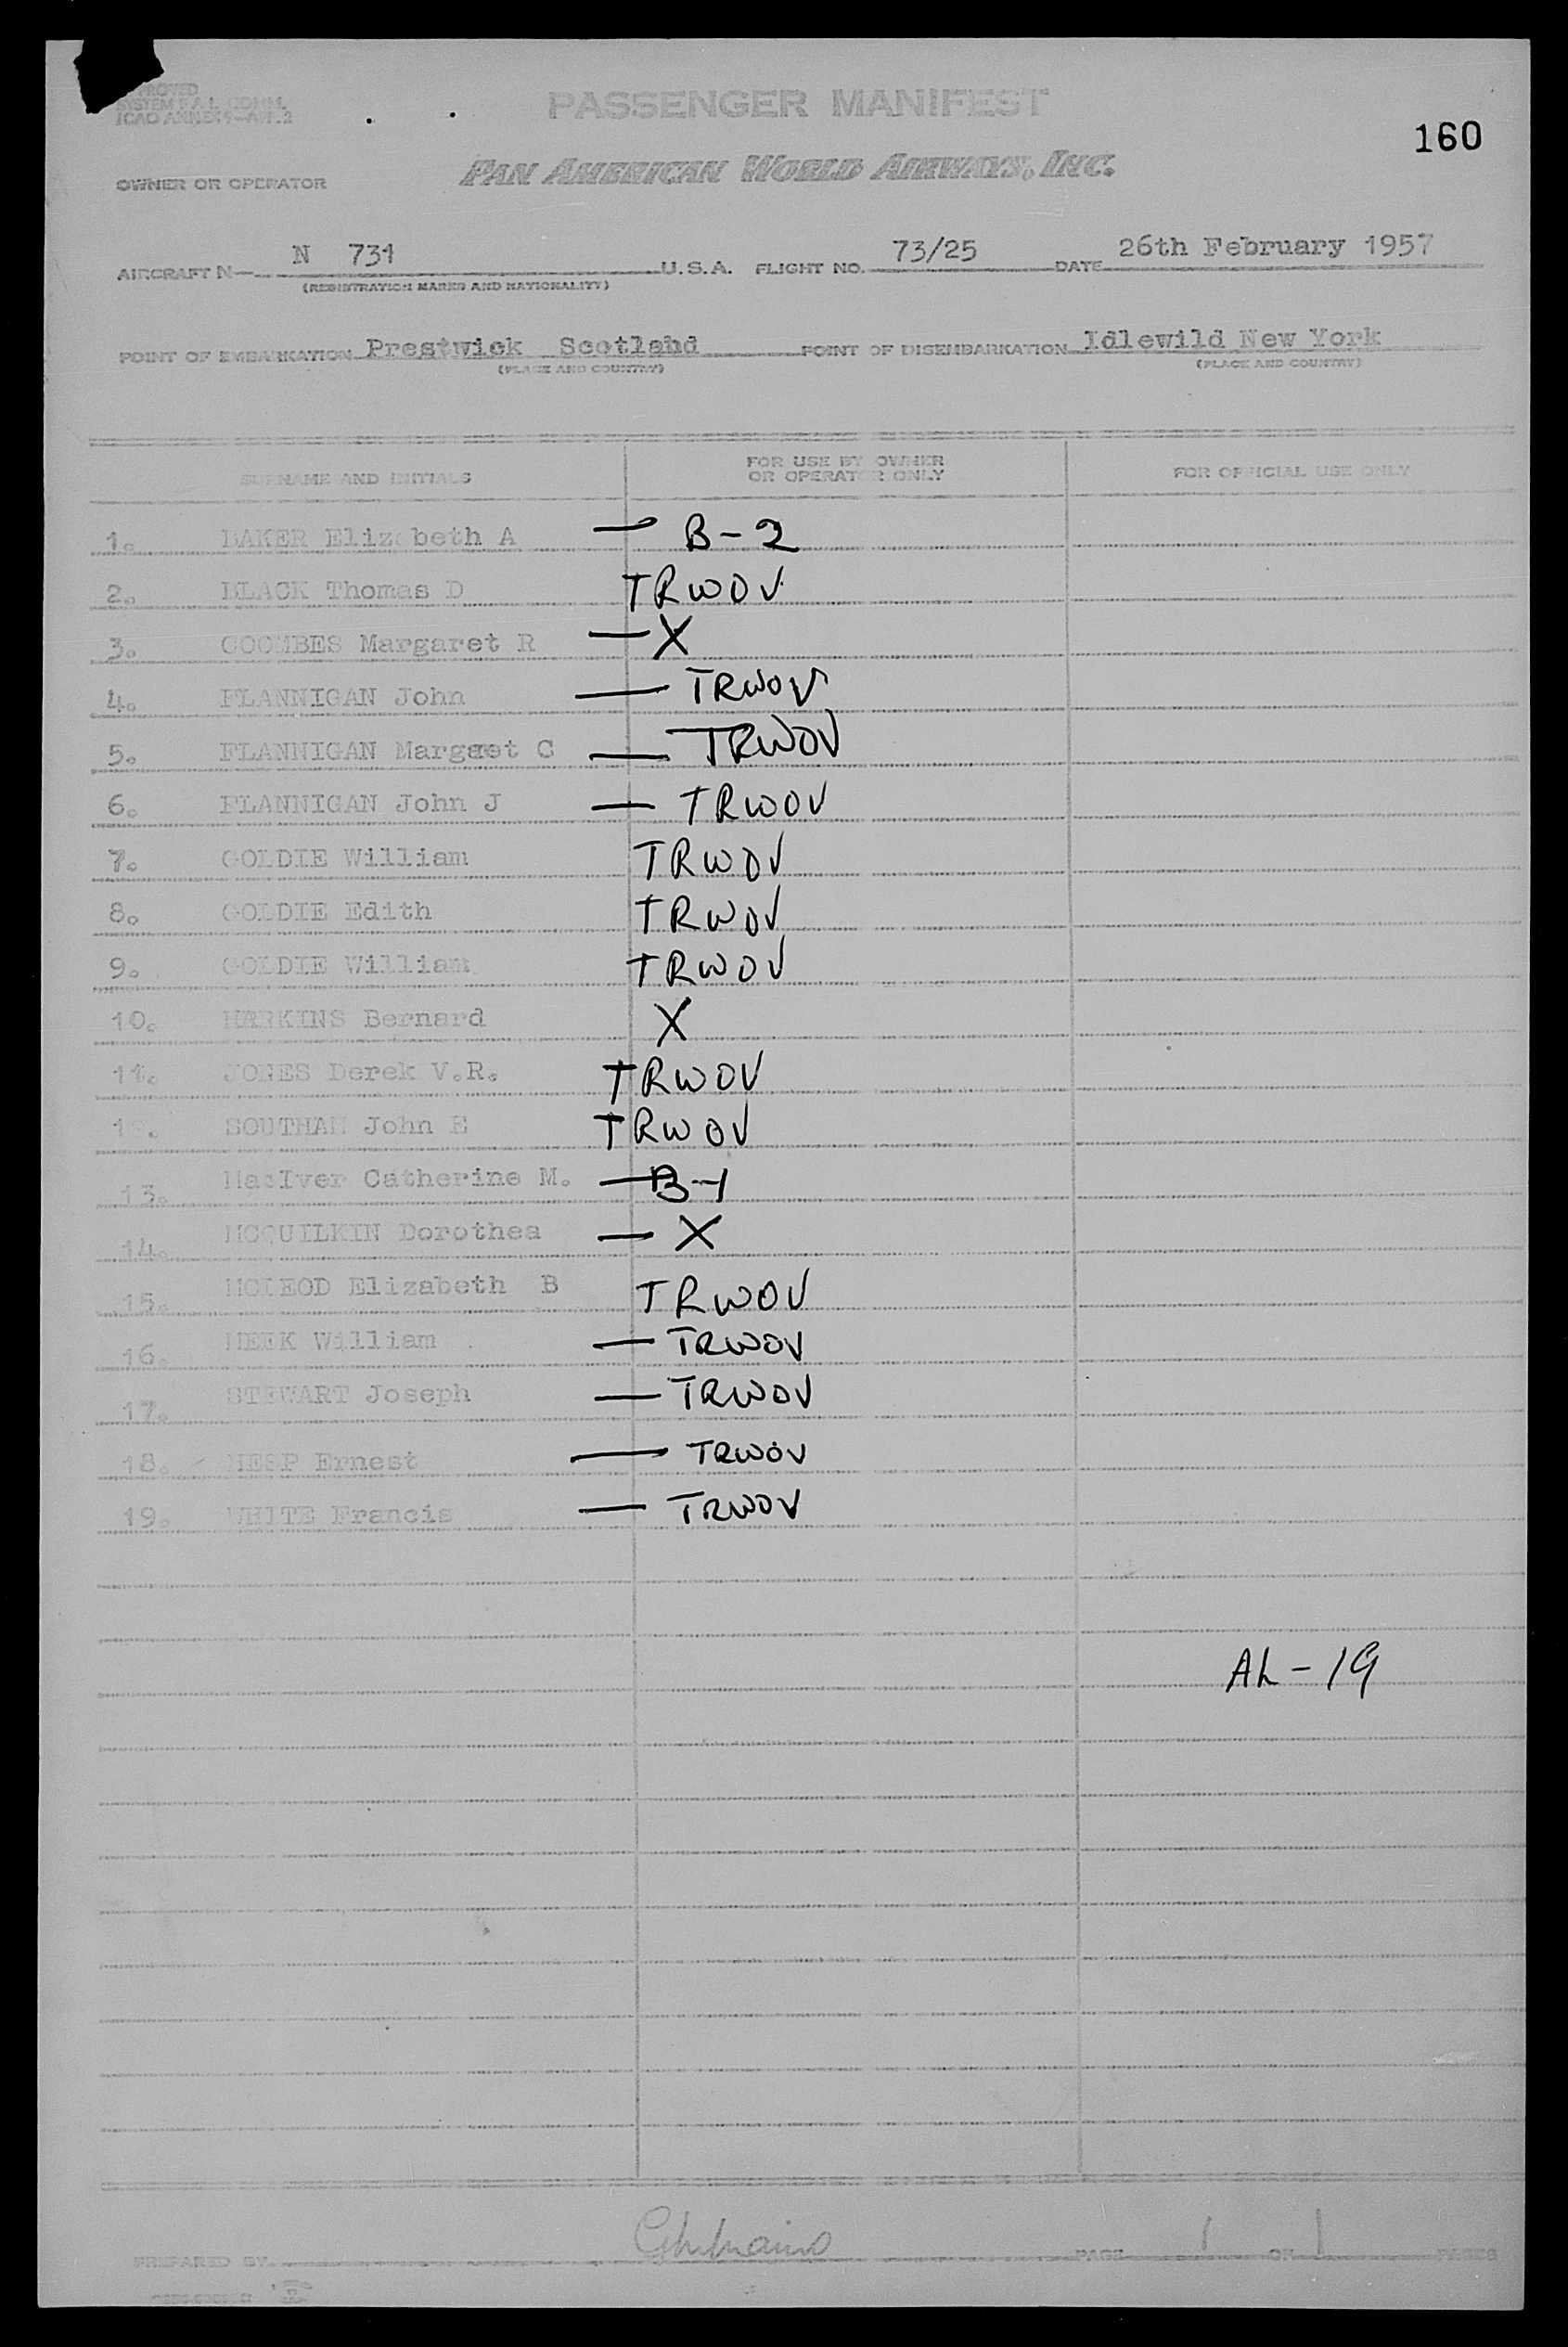 160
SYSTEM F.A.L. COMM.
ICAO ANNEX 9—APP.2
PASSENGER MANIFEST
OWNER OR OPERATOR PAN AMERICAN WORLD AIRWAYS, INC.
AIRCRAFT N— N 731 U.S.A. FLIGHT NO. 73/25 DATE 26th February 1957
(REGISTRATION MARKS AND NATIONALITY)
POINT OF EMBARKATION Prestwick Scotland POINT OF DISEMBARKATION Idlewild New York
(PLACE AND COUNTRY) (PLACE AND COUNTRY)
SURNAME AND INITIALS FOR USE BY OWNER OR OPERATOR ONLY FOR OFFICIAL USE ONLY
1. BAKER Elizabeth A — B-2
2. BLACK Thomas D TRWOV
3. COOMBES Margaret R — X
4. FLANNIGAN John — TRWOV
5. FLANNIGAN Margaret C — TRWOV
6. FLANNIGAN John J — TRWOV
7. GOLDIE William TRWOV
8. GOLDIE Edith TRWOV
9. GOLDIE William TRWOV
10. HARKINS Bernard X
11. JONES Derek V.R. TRWOV
SOUTHAM John E TRWOV
13. MacIver Catherine M. — B-1
14. MCQUILKIN Dorothea — X
15. MCLEOD Elizabeth B TRWOV
16. MEEK William — TRWOV
17. STEWART Joseph — TRWOV
18. HESP Ernest — TRWOV
19. WHITE Francis — TRWOV
AL-19
PREPARED BY PAGE 1 OF 1 PAGES